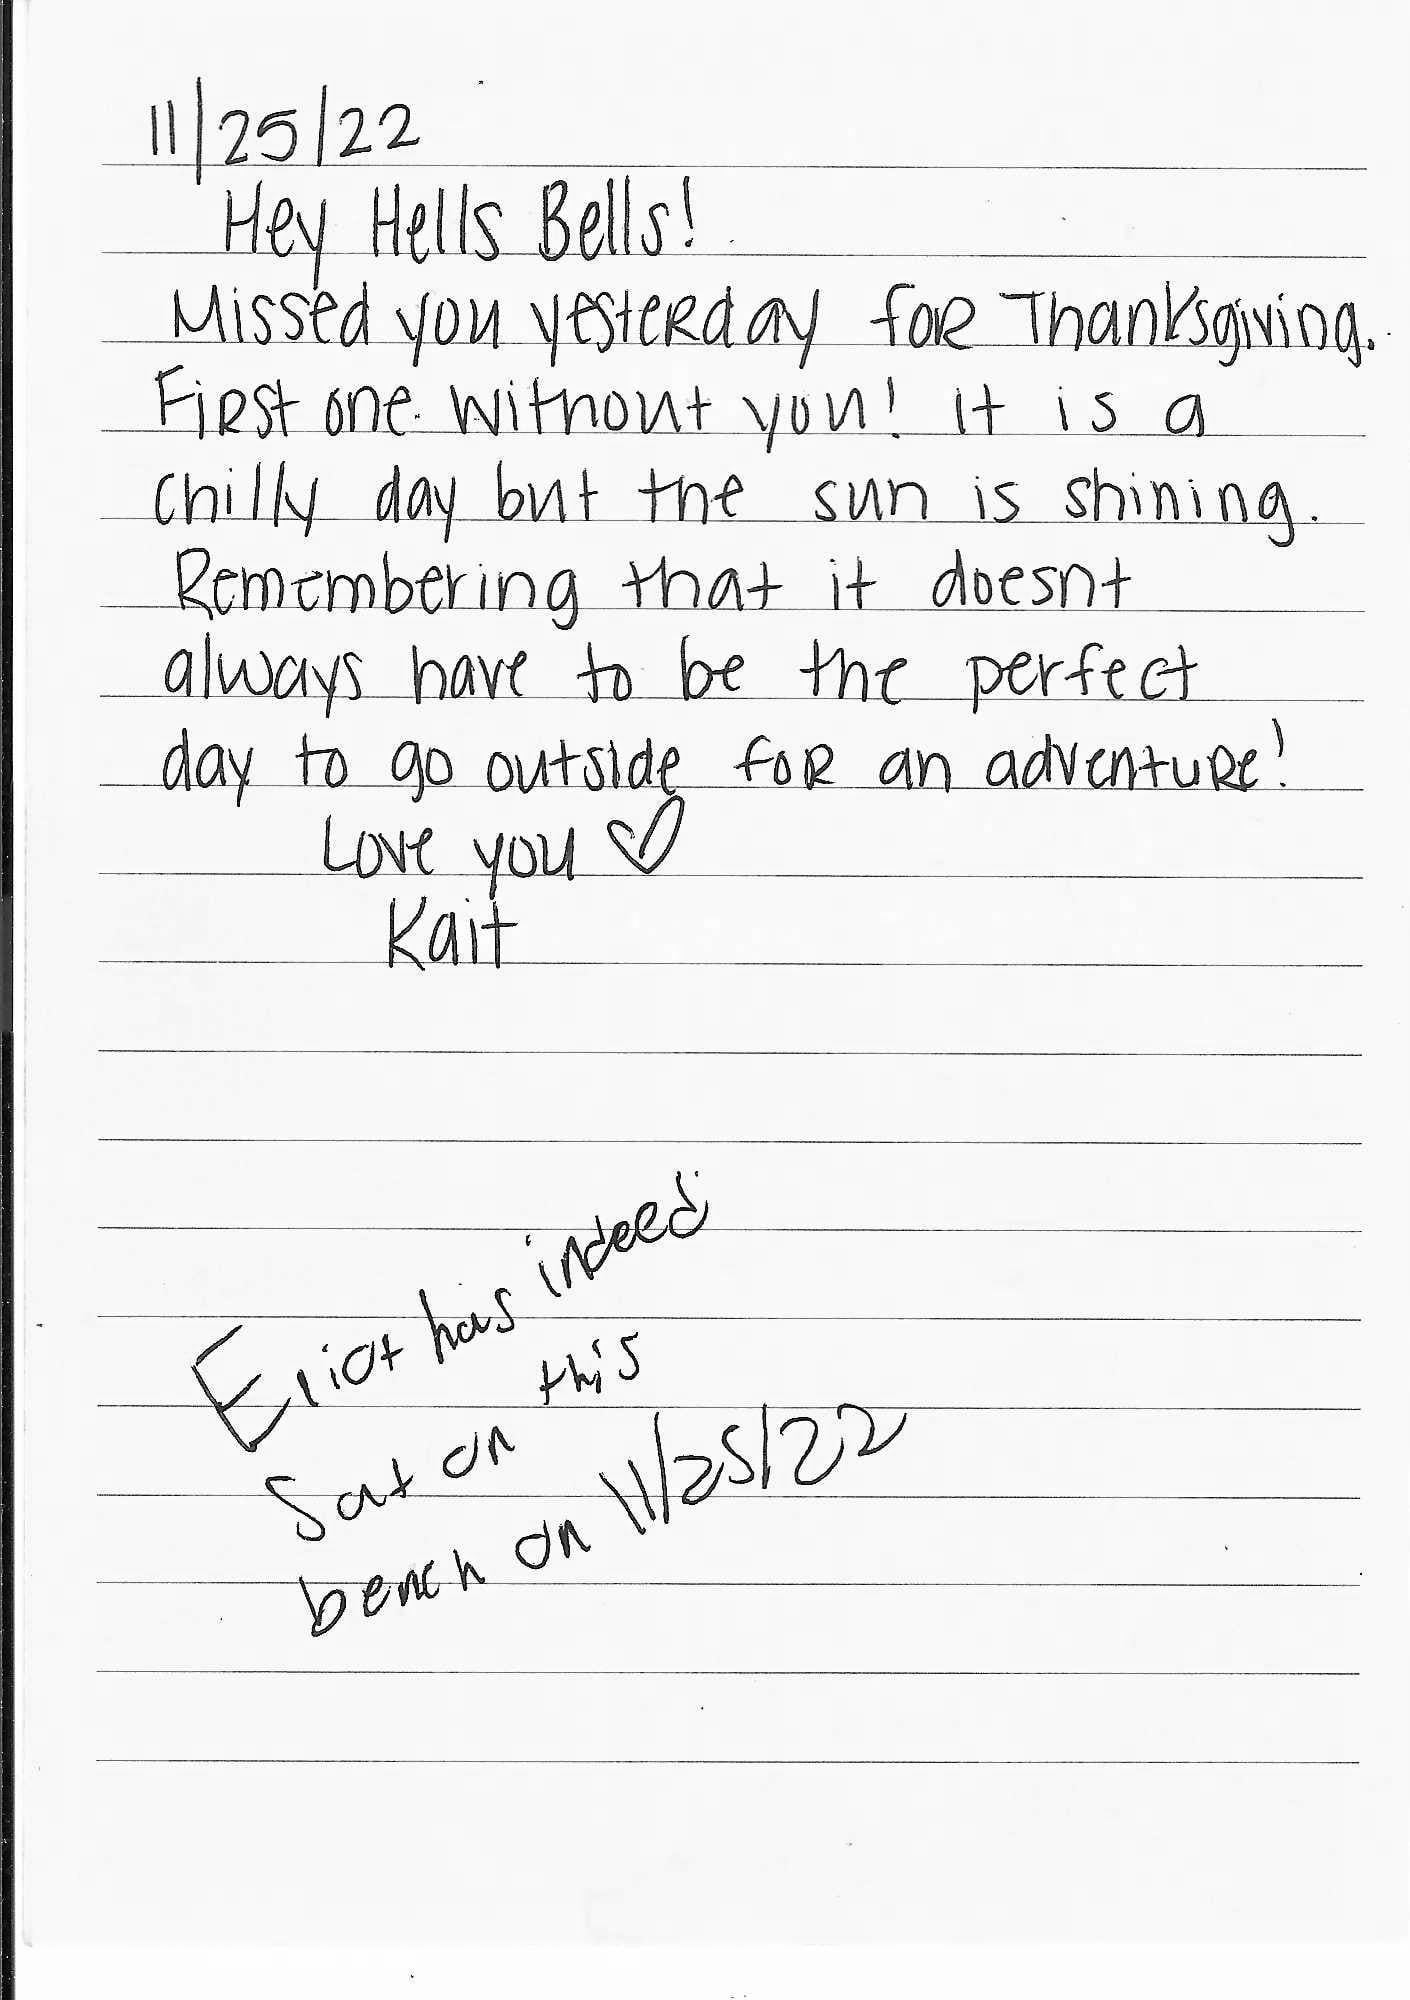 11/25/22
Hey Hells Bells!
Missed you yesterday for Thanksgiving.
First one without you! It is a
chilly day but the sun is shining.
Remembering that it doesnt
always have to be the perfect
day to go outside for an adventure!
Love you ♡
Kait
Eliot has indeed
Sat on this
bench on 11/25/22